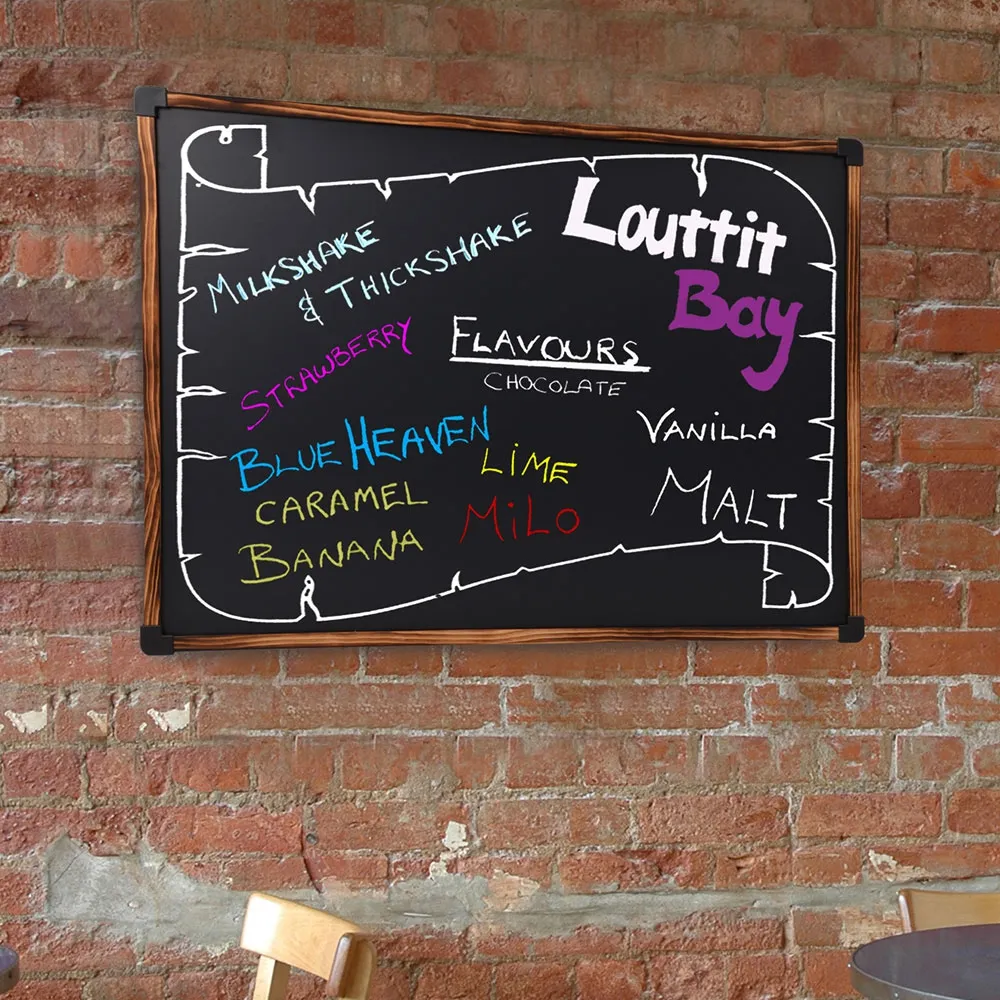 MILKSHAKE
& THICKSHAKE
Louttit
Bay
FLAVOURS
STRAWBERRY
CHOCOLATE
VANILLA
BLUE HEAVEN
LIME
CARAMEL
MALT
MILO
BANANA